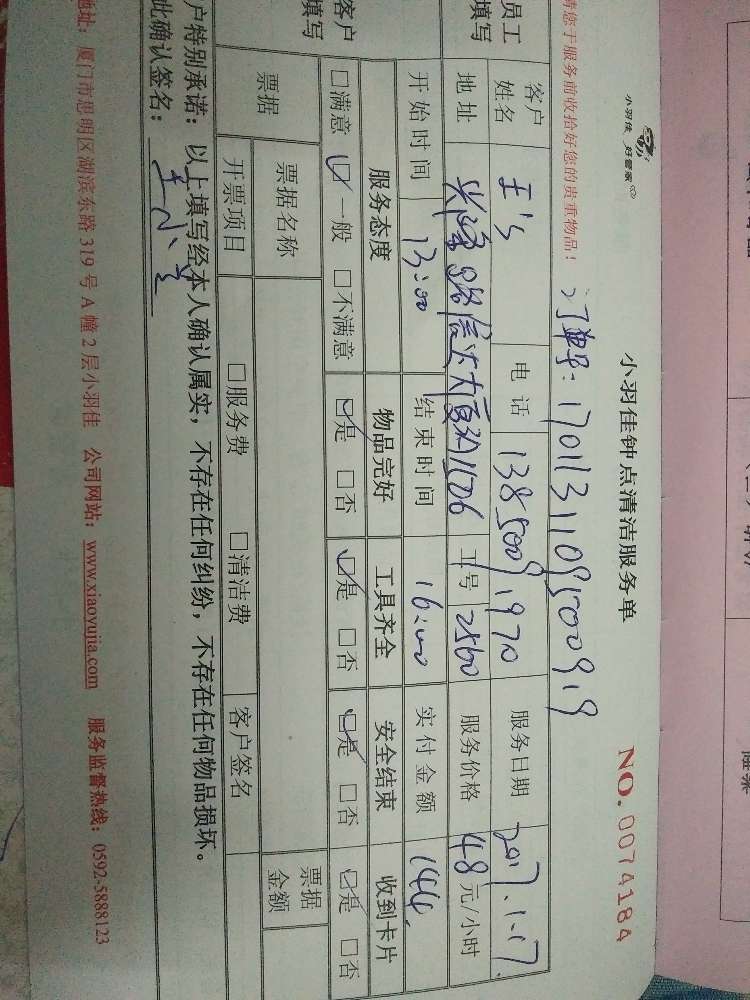 小羽佳 好管家
小羽佳钟点清洁服务单
NO.0074184
请您于服务前收拾好您的贵重物品!
订单号:
员工填写
客户姓名
王's
电话
服务日期
2017.1.17
地址
工号
2560
服务价格
48元/小时
开始时间
13:00
结束时间
16:00
实付金额
144
客户填写
服务态度
物品完好
工具齐全
安全结束
收到卡片
□满意 ☑一般 □不满意
☑是 □否
☑是 □否
☑是 □否
☑是 □否
票据
票据名称
票据金额
开票项目
□服务费 □清洁费
客户签名
户特别承诺:以上填写经本人确认属实,不存在任何纠纷,不存在任何物品损坏。
此确认签名:
地址:厦门市思明区湖滨东路319号A幢2层小羽佳 公司网站:www.xiaoyujia.com 服务监督热线:0592-5888123